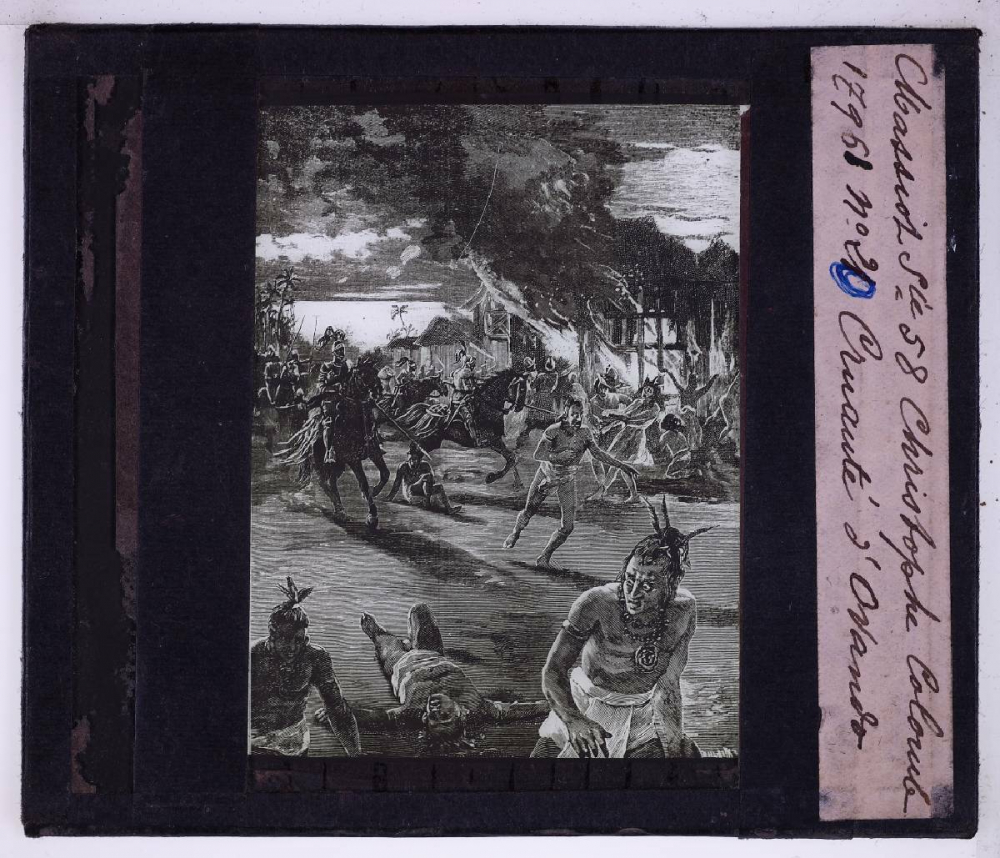 Massiot Sie 58 Christophe Colomb
17961 no 20 Cruauté d'Ovando